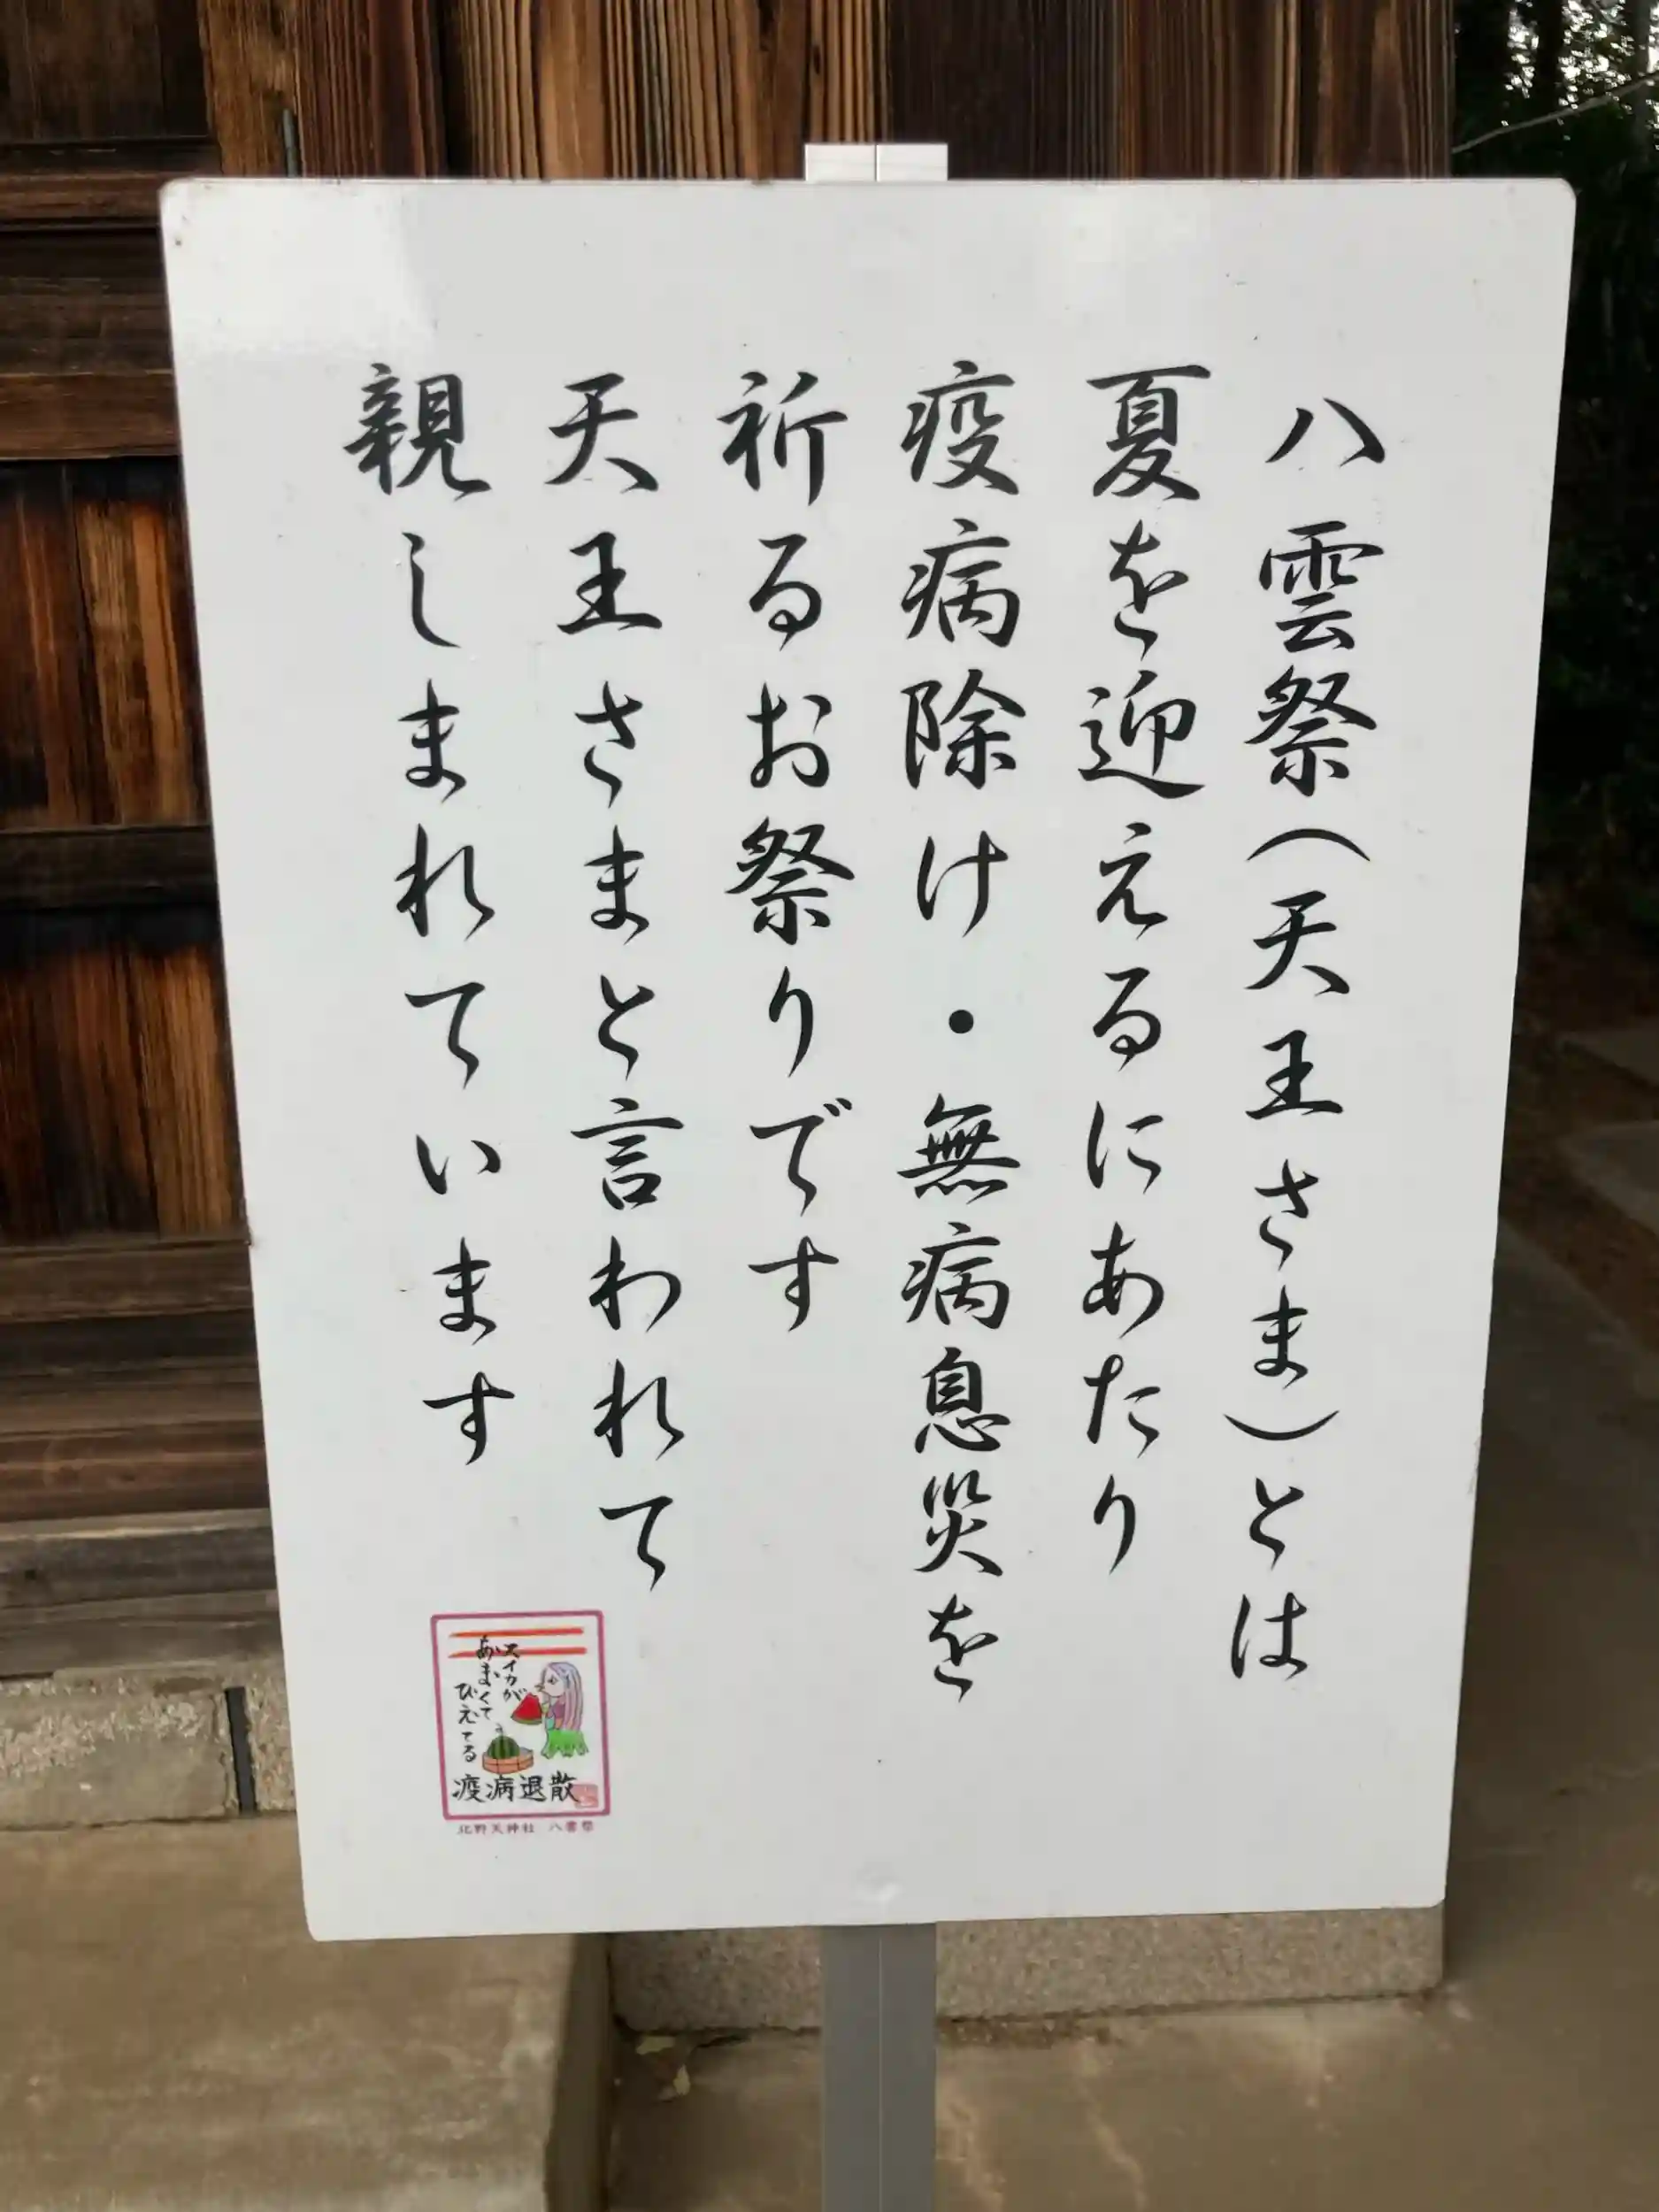 八雲祭(天王さま)とは
夏を迎えるにあたり
疫病除け・無病息災を
祈るお祭りです
天王さまと言われて
親しまれています
スイカが
あまくて
ひえてる
疫病退散
北野天神社 八雲祭